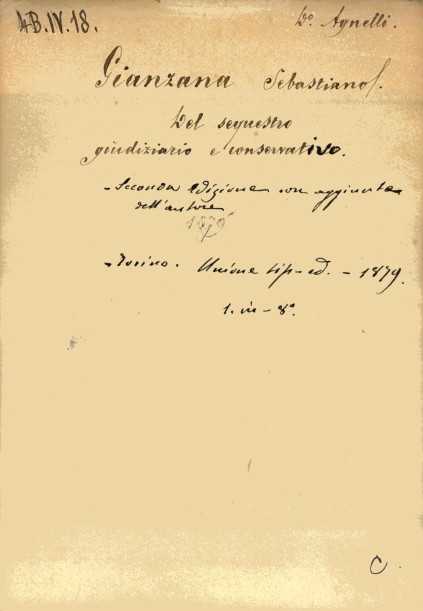 4B.IV.18.
Do. Agnelli.
Gianzana Sebastiano.
Del sequestro
giudiziario e conservativo.
- Seconda edizione con aggiunte
dell'autore
- Torino. Unione tip-ed. - 1879.
1. in - 8°
C.